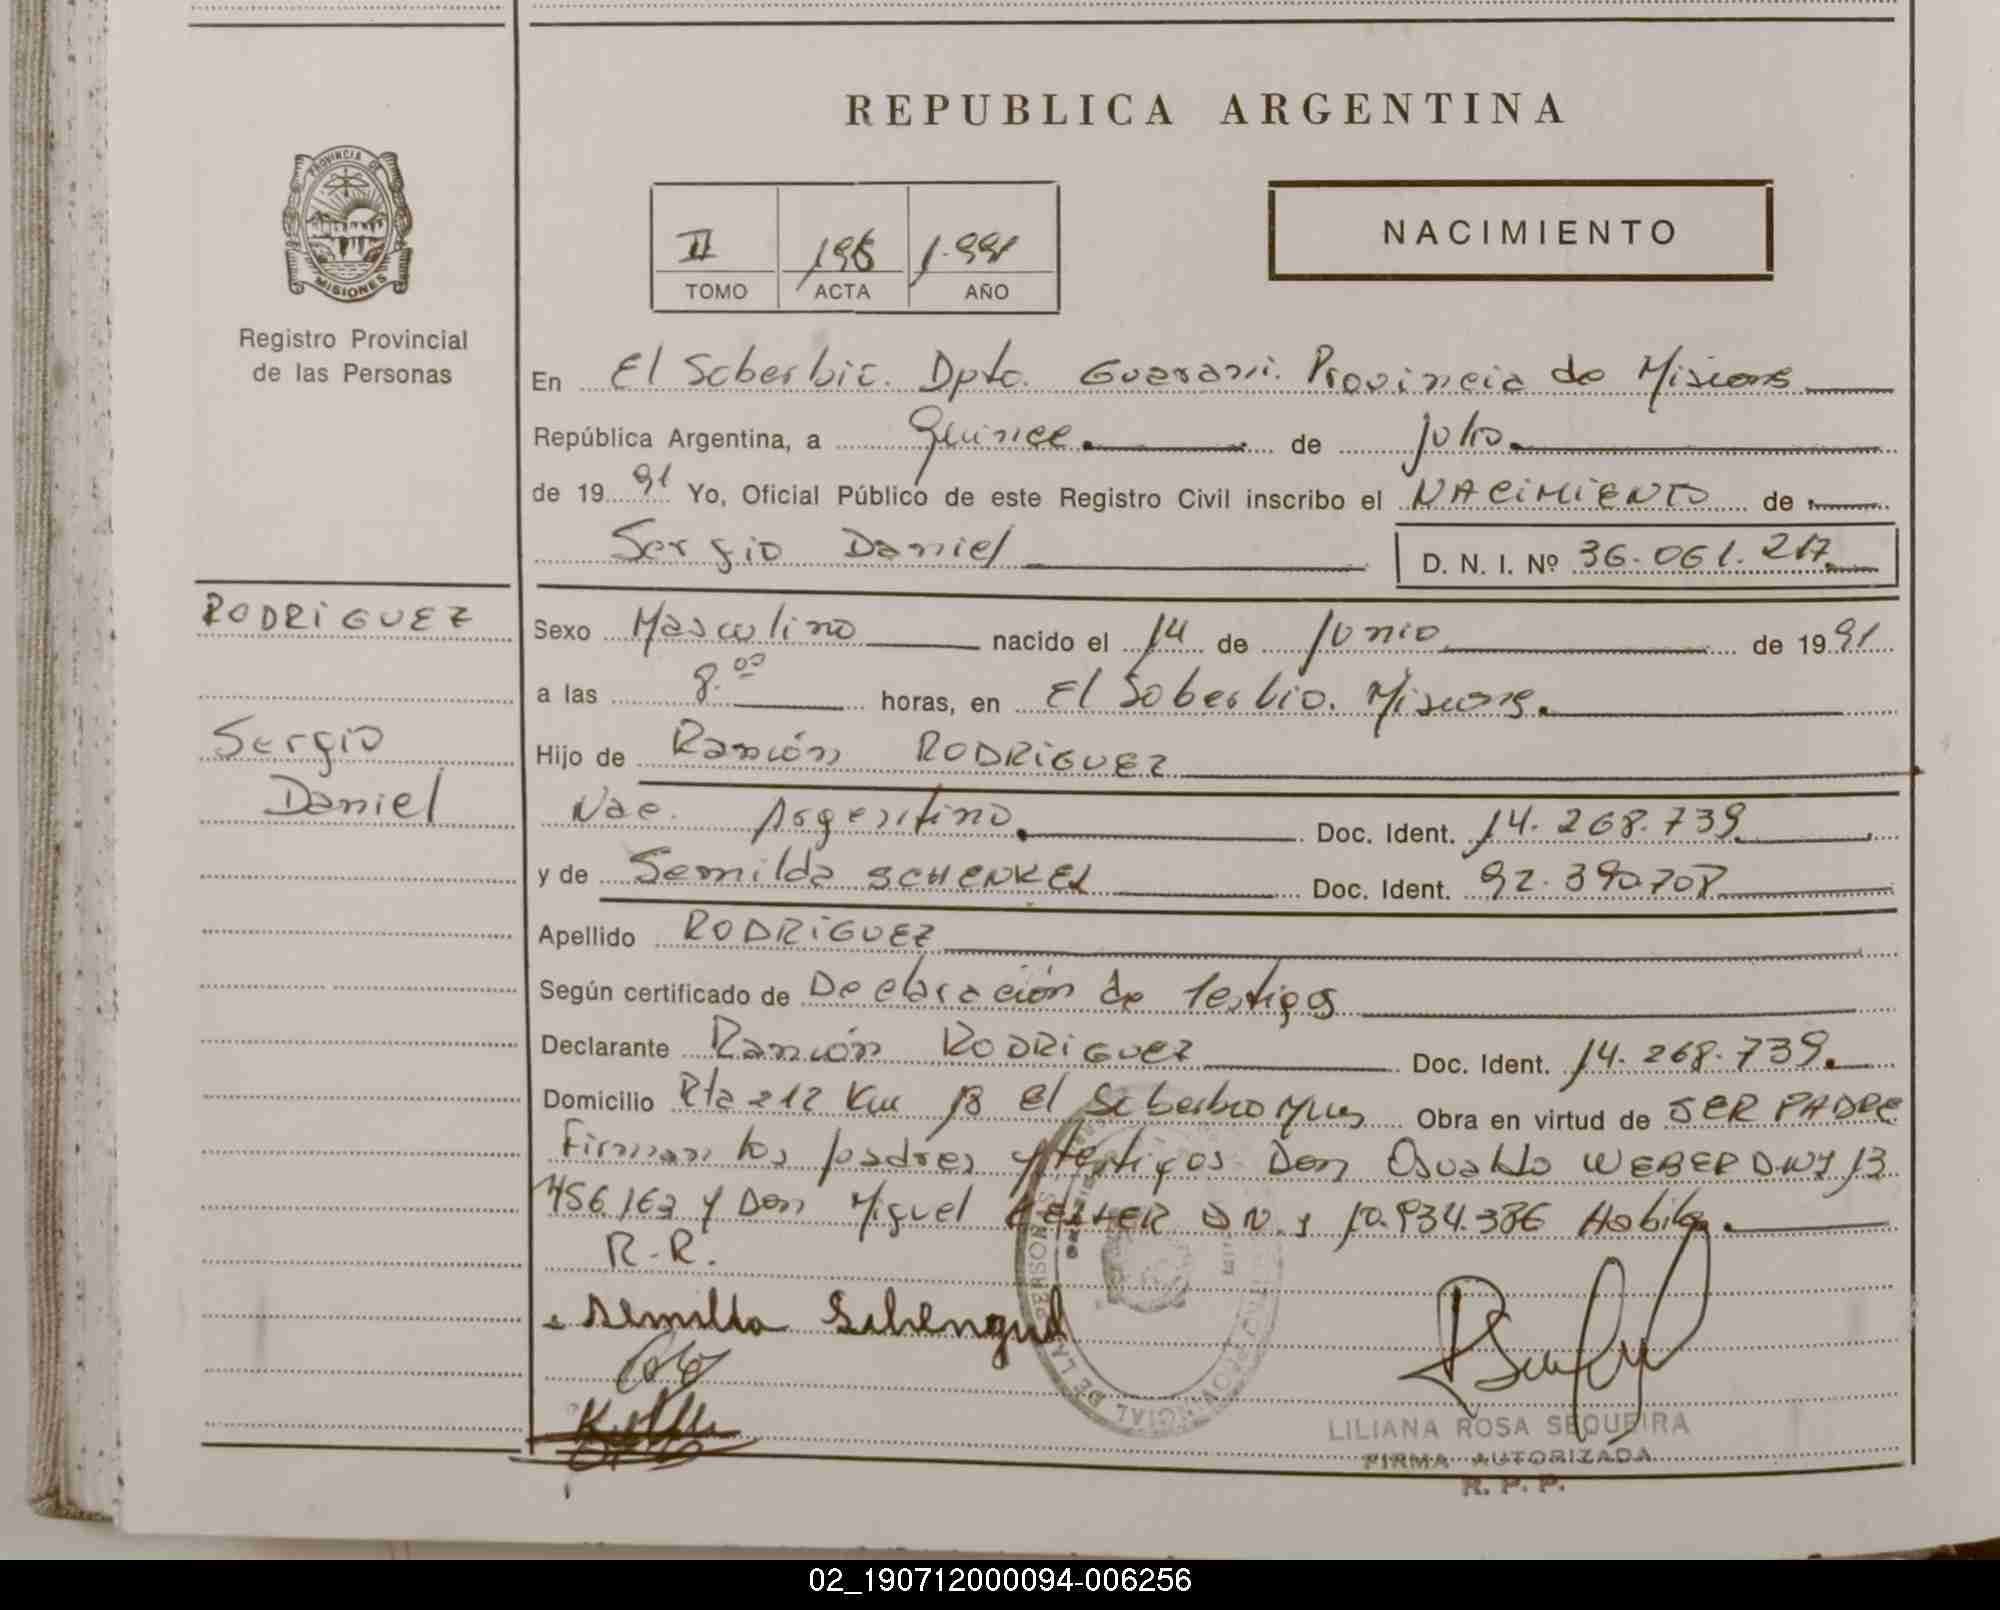 REPUBLICA ARGENTINA
PROVINCIA DE
MISIONES
Registro Provincial
de las Personas
II 1.991
TOMO ACTA AÑO
NACIMIENTO
En El Soberbio. Dpto. Guarani. Provincia de Misiones
República Argentina, a quince de julio
de 19 91 Yo, Oficial Público de este Registro Civil inscribo el NACIMIENTO de
Sergio Daniel D. N. I. Nº 36.061.217
RODRIGUEZ
Sergio
Daniel
Sexo Masculino nacido el 14 de Junio de 19 91
a las 8.00 horas, en El Soberbio. Misiones.
Hijo de Ramón RODRIGUEZ
Nac. Argentino. Doc. Ident. 14.268.739
y de Semilda SCHENKEL Doc. Ident. 92.390.708
Apellido RODRIGUEZ
Según certificado de Declaración de Testigos
Declarante Ramón RODRIGUEZ Doc. Ident. 14.268.739.
Domicilio Rta 212 Km 18 El Soberbio Mnes Obra en virtud de SER PADRE
Firman los padres y testigos Don Osvaldo WEBER D.N.I 13
456.163 y Don Miguel D.N.I 10.934.386 Habiles.
R.R.
Semilda Schenguel
LILIANA ROSA SEQUEIRA
FIRMA AUTORIZADA
R. P. P.
02_190712000094-006256